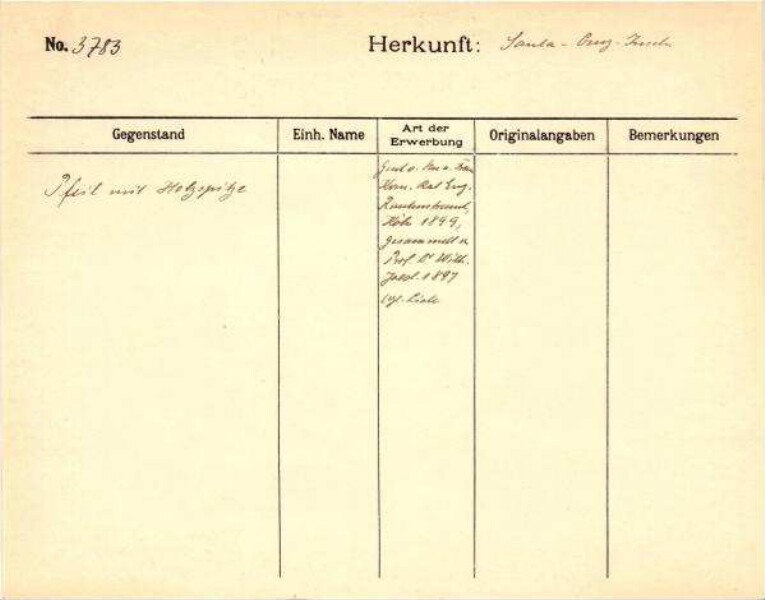 No. 3783 Herkunft: Santa-Cruz-Inseln
Gegenstand Einh. Name Art der Erwerbung Originalangaben Bemerkungen
Pfeil mit Holzspitze
Frau
Kom. Rat Eug.
Rautenstrauch,
Köln 1899,
gesammelt v.
Prof. Dr Wilh.
Joest 1897
vgl. Liste